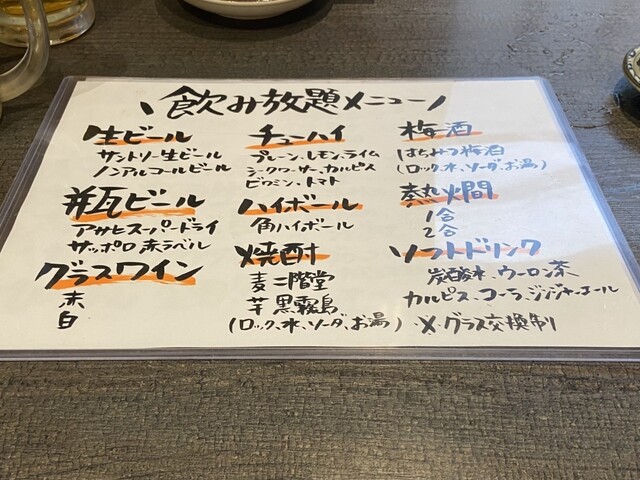 \飲み放題メニュー/
生ビール
サントリー生ビール
ノンアルコールビール
瓶ビール
アサヒスーパードライ
サッポロ赤ラベル
グラスワイン
赤
白
チューハイ
プレーン、レモン、ライム
シークワーサー、カルピス
ビタミン、トマト
ハイボール
角ハイボール
焼酎
麦 二階堂
芋 黒霧島
(ロック、水、ソーダ、お湯)
梅酒
はちみつ梅酒
(ロック、水、ソーダ、お湯)
熱燗
1合
2合
ソフトドリンク
炭酸水、ウーロン茶
カルピス、コーラ、ジンジャーエール
※グラス交換制